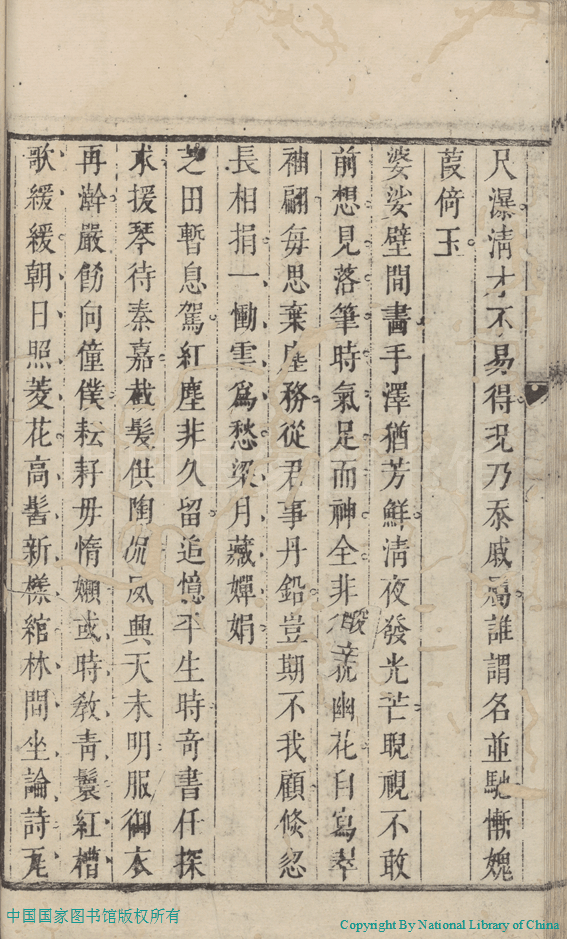 尺瀑淸才不易得況乃忝戚屬誰謂名並馳慚媿
葭倚玉
婆娑壁間畵手澤猶芳鮮淸夜發光芒睨視不敢
前想見落筆時氣足而神全非假辛幽花自寫翠
袖翩每思棄塵務從君事丹鉛豈期不我顧倐忽
長相捐一慟雲爲愁梁月藏嬋娟
芝田暫息駕紅塵非久留追憶平生時奇書任探
求援琴待秦嘉截髮供陶侃夙興天未明服御衣
再澣嚴飭向僮僕耘耔毋惰嬾或時敎靑鬟紅槽
歌緩緩朝日照菱花高髻新樣綰林間坐論詩瓦
中国国家图书馆版权所有
Copyright By National Library of China